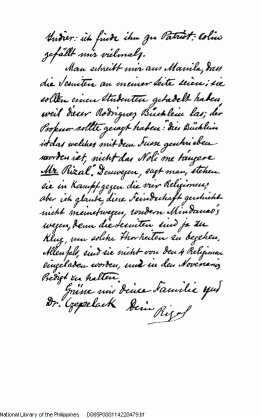 Indier: ich finde ihn zu Patriot: Colin
gefällt mir vielmals.
Man schreibt mir aus Manila, dass
die Jesuiten an meiner Seite seien: sie
sollen einen Studenten getadelt haben
weil dieser Rodriguez Büchlein las; der
Professor sollte gesagt haben: dies Büchlein
ist das welches mit dem Fusse geschrieben
worden ist, nicht das Noli me tangere
Mr. Rizal". Deswegen, sagt man, stehen
sie in Kampf gegen die vier Religionen;
aber ich glaube, diese Feindschaft geschieht
nicht meinetwegen, sondern Mindanao's
wegen, denn die Jesuiten sind ja zu
klug, um solche Thorheiten zu begehen.
Allenfalls, sind sie nicht von den 4 Religionen
eingeladen worden, um in den Novenarios
Predigt zu halten.
Grüsse mir deine Familie und
Dr. Czepelack
Dein
Rizal
National Library of the Philippines D085P000114220479.tif